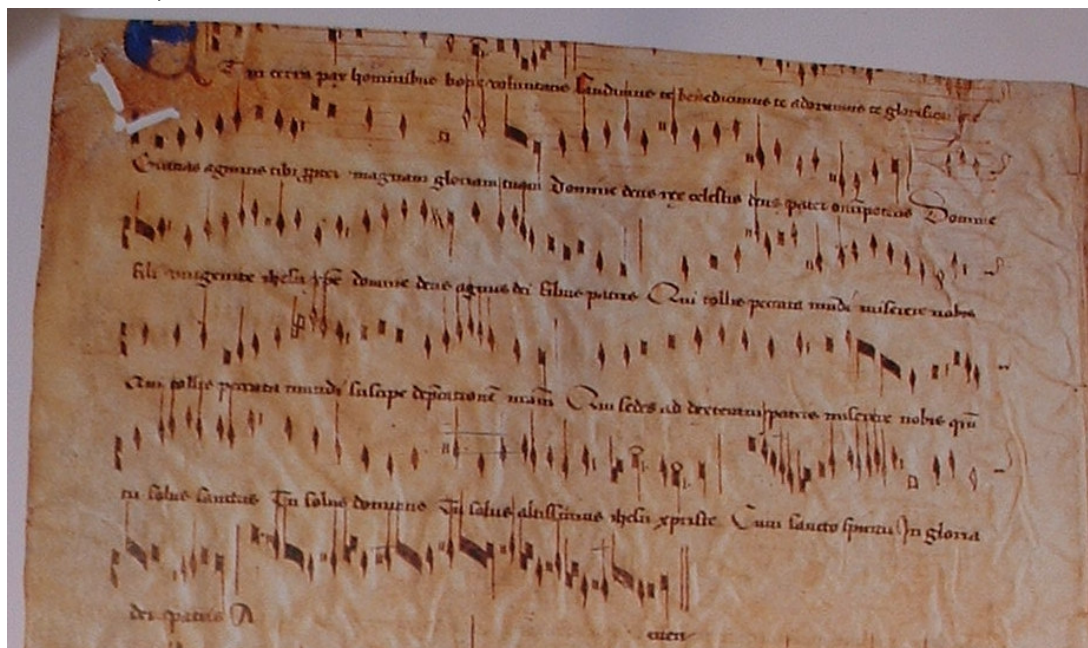 Et in terra pax hominibus bone voluntatis Laudamus te benedicimus te adoramus te glorificam9 te
Gratias agimus tibi ppter magnam gloriam tuam Domine deus rex celestis deus pater omipotens Domine
fili unigenite ihesu xpe domine deus agnus dei filius patris Qui tollis peccata mudi miserere nobis
Qui tollis peccata mundi suscipe depcationē nram Qui sedes ad dexteram patris miserere nobis qm̄
tu solus sanctus Tu solus dominus Tu solus altissimus ihesu xpriste Cum sancto spiritu In gloria
dei patris A men